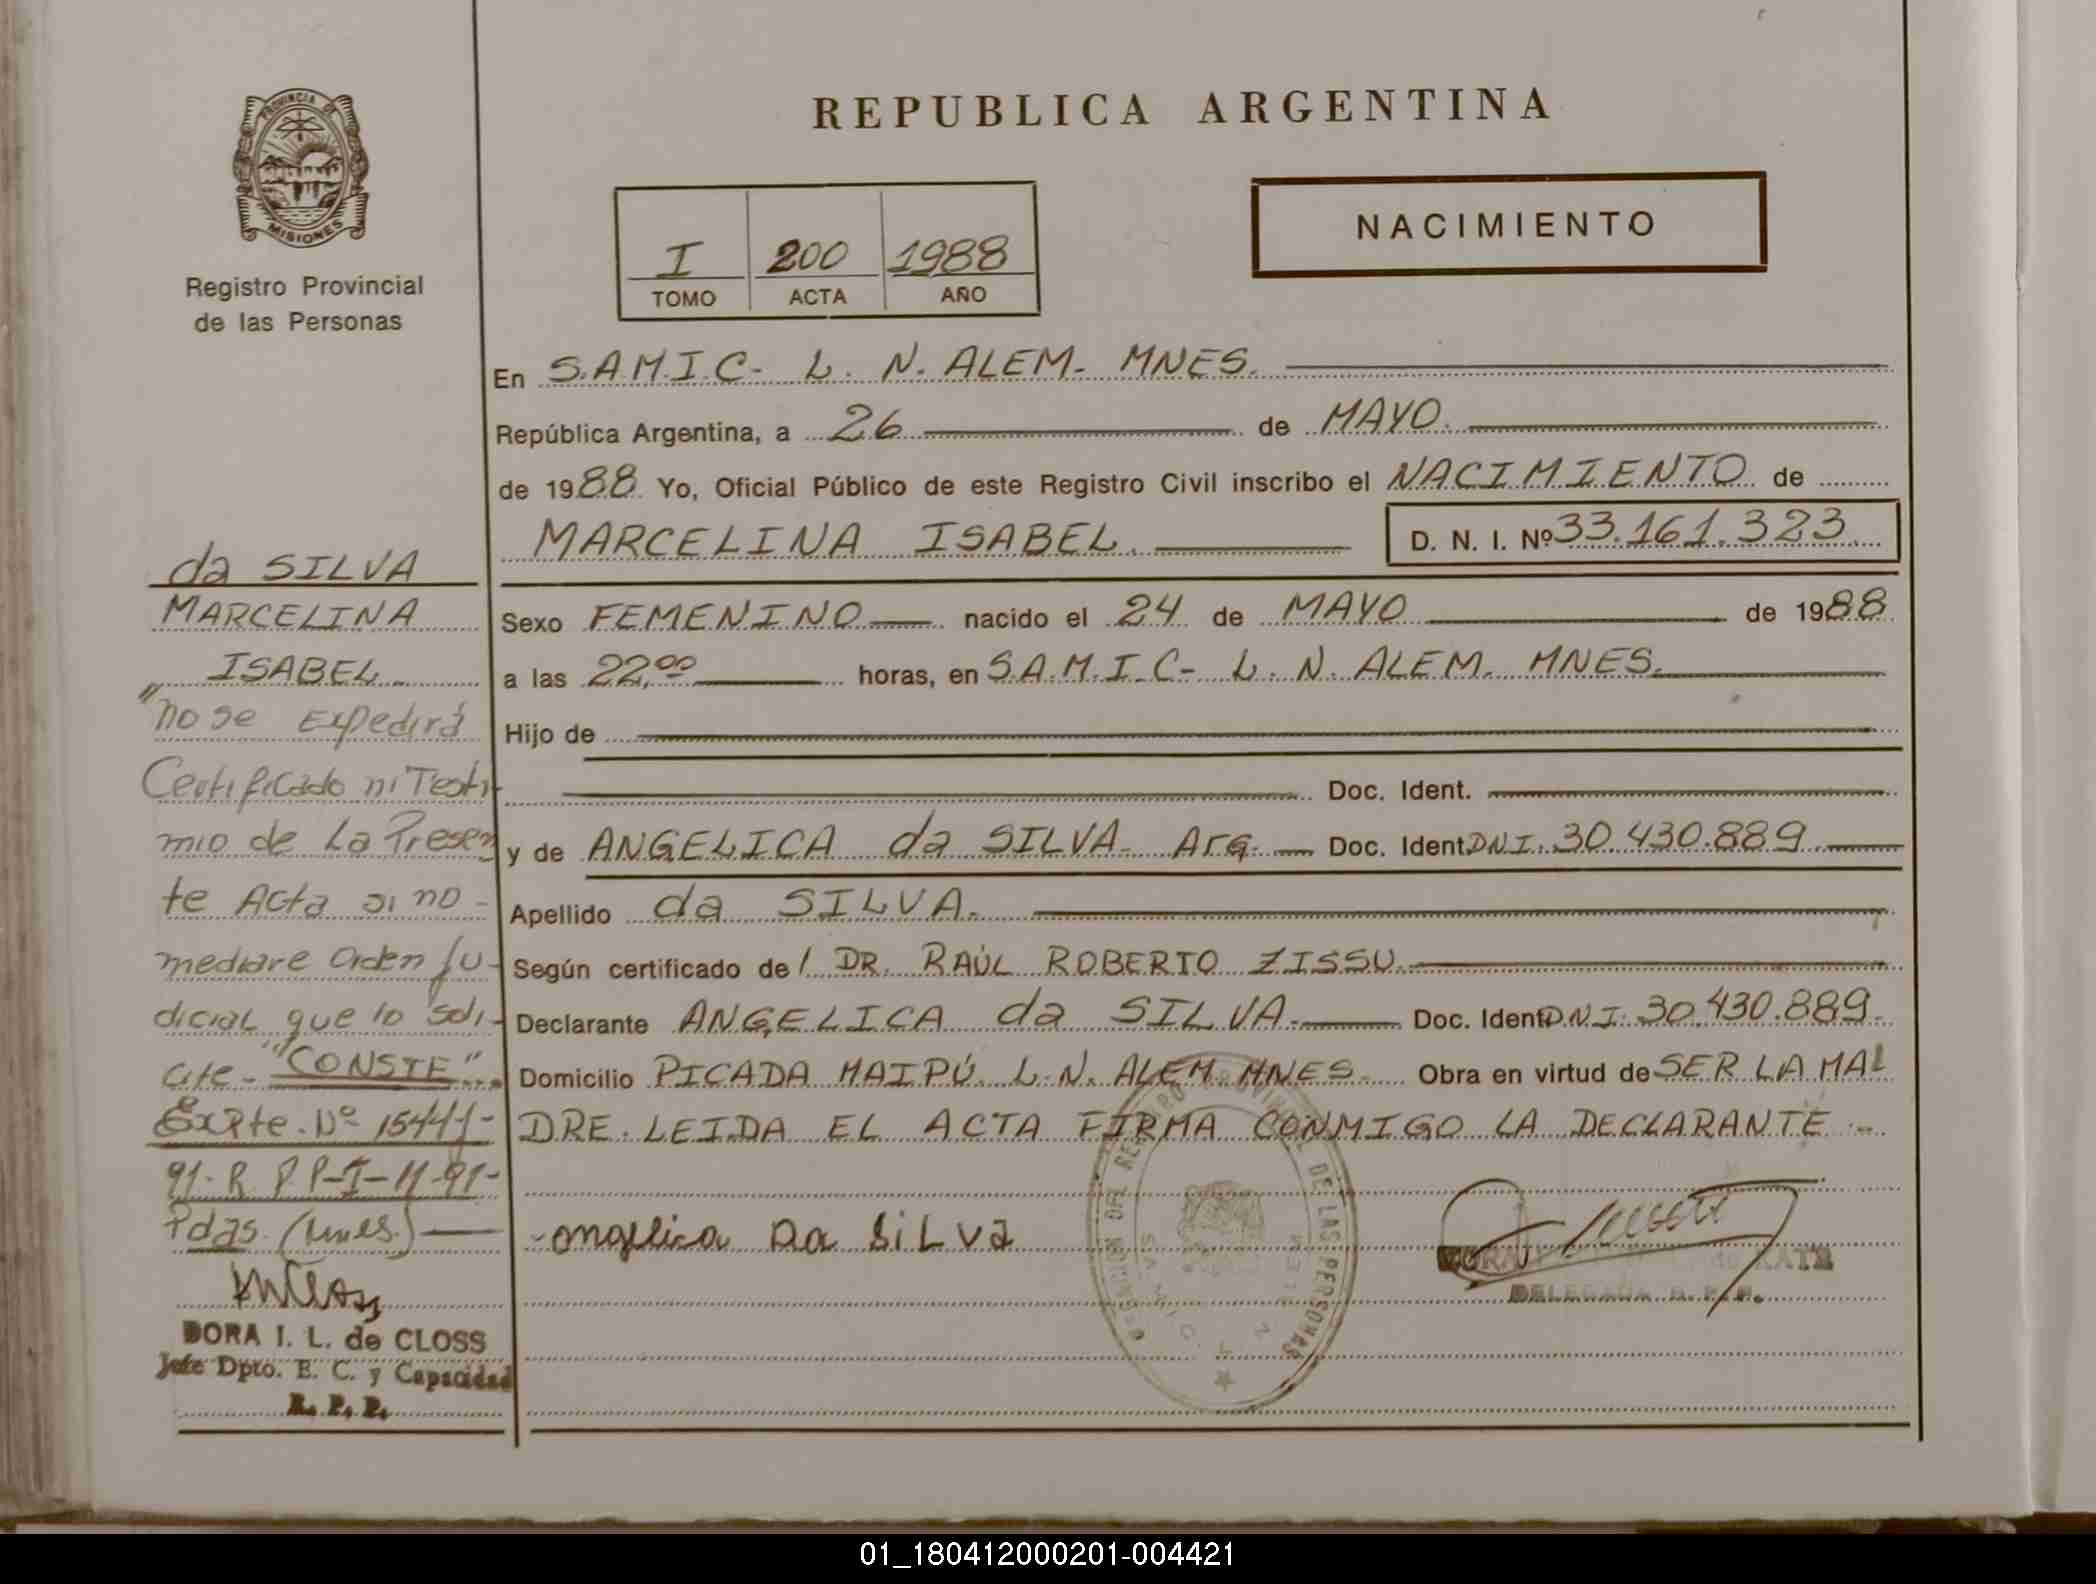 REPUBLICA ARGENTINA
PROVINCIA DE
MISIONES
Registro Provincial
de las Personas
I 200 1988
TOMO ACTA AÑO
NACIMIENTO
En S.A.M.I.C- L. N. ALEM- MNES.
República Argentina, a 26 de MAYO.
de 1988 Yo, Oficial Público de este Registro Civil inscribo el NACIMIENTO de
MARCELINA ISABEL. D. N. I. Nº 33.161.323
Sexo FEMENINO nacido el 24 de MAYO de 1988
a las 22,00 horas, en S.A.M.I.C- L. N. ALEM. MNES.
Hijo de
Doc. Ident.
y de ANGELICA da SILVA- Arg. Doc. Ident. DNI. 30.430.889
Apellido da SILVA.
Según certificado de / DR. RAÚL ROBERTO ZISSU.
Declarante ANGELICA da SILVA. Doc. Ident. D.N.I. 30.430.889.
Domicilio PICADA MAIPÚ L.N. ALEM MNES. Obra en virtud de SER LA MA
DRE. LEIDA EL ACTA FIRMA CONMIGO LA DECLARANTE -
-angelica Da SiLva
DELEGACION DEL REGISTRO PROVINCIAL DE LAS PERSONAS
DELEGADA R. P. P.
da SILVA
MARCELINA
ISABEL
"no se Expedirá
Certificado ni Testi-
mio de La Presen
te Acta si no -
mediare Orden Ju-
dicial que lo soli-
cite- "CONSTE"...
Expte. Nº 1544/-
91- R P P-I-11-91-
Pdas. (Mnes.)
DORA I. L. de CLOSS
Jefe Dpto. E. C. y Capacidad
R. P. P.
01_180412000201-004421